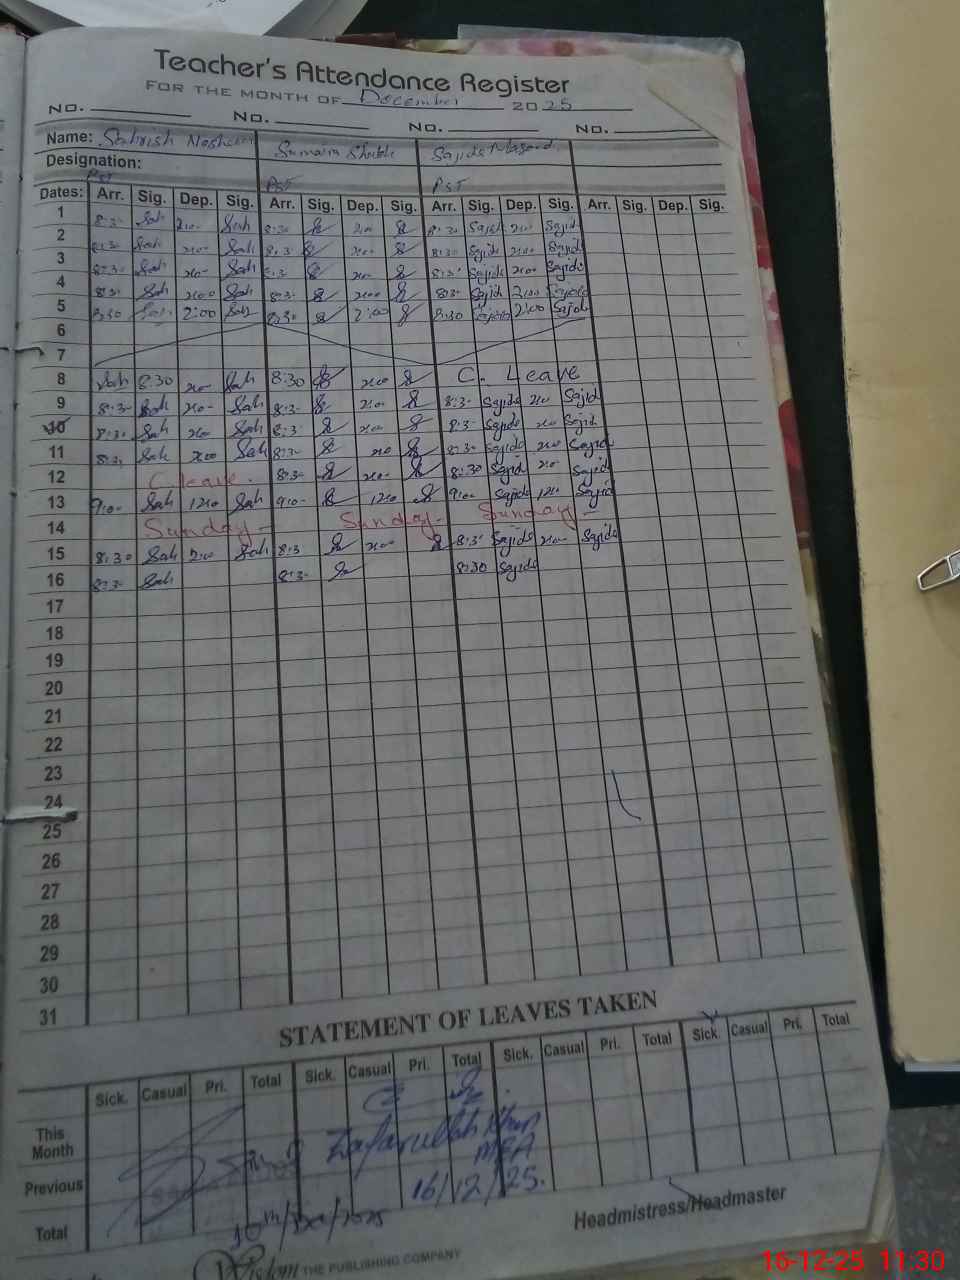 Teacher's Attendance Register
FOR THE MONTH OF December 2025
NO. NO. NO. NO.
Name: Sahrish Sumaira Sajida
Designation: PST PST PST
Dates: Arr. Sig. Dep. Sig. Arr. Sig. Dep. Sig. Arr. Sig. Dep. Sig. Arr. Sig. Dep. Sig.
1 8:3- Sah 2:0- Sah 8:30 2:0- 8:30 Sajid 2:0- Sajid
2 8:30 Sah 2:0- Sah 8:3- 2:0- 8:30 Sajid 2:0- Sajid
3 8:30- Sah 2:0- Sah 8:3- 2:0- 8:3- Sajid 2:00- Sajid
4 8:3- Sah 2:00 Sah 8:3- 2:00 8:3- Sajid 2:00 Sajida
5 8:30 Sah 2:00 Sah 8:30- 2:00 8:30 Sajida 2:00 Sajid
6
7
8 Sah 8:30 2:0- Sah 8:30 2:0- C. Leave
9 8:3- Sah 2:0- Sah 8:3- 2:0- 8:3- Sajid 2:0 Sajid
10 8:3- Sah 2:0 Sah 8:3 2:0- 8:3- Sajida 2:0 Sajid
11 8:3- Sah 2:00 Sah 8:3- 2:0 8:30- Sajida 2:0- Sajid
12 C. leave. 8:3- 2:0- 8:30 Sajid 2:0- Sajid
13 9:0- Sah 12:0 Sah 9:0- 12:0 9:0- Sajida 12:0 Sajid
14 Sunday - Sunday - Sunday -
15 8:30 Sah 2:0 Sah 8:3 2:0- 8:3- Sajida 2:0- Sajida
16 8:3- Sah 8:3- 8:30 Sajida
17
18
19
20
21
22
23
24
25
26
27
28
29
30
31
STATEMENT OF LEAVES TAKEN
Sick. Casual Pri. Total Sick. Casual Pri. Total Sick. Casual Pri. Total Sick. Casual Pri. Total
This Month
Zafarullah Khan
MEA
Previous
16/12/25.
Total
10th/Dec/2025
Headmistress/Headmaster
Wisdom THE PUBLISHING COMPANY
16-12-25 11:30